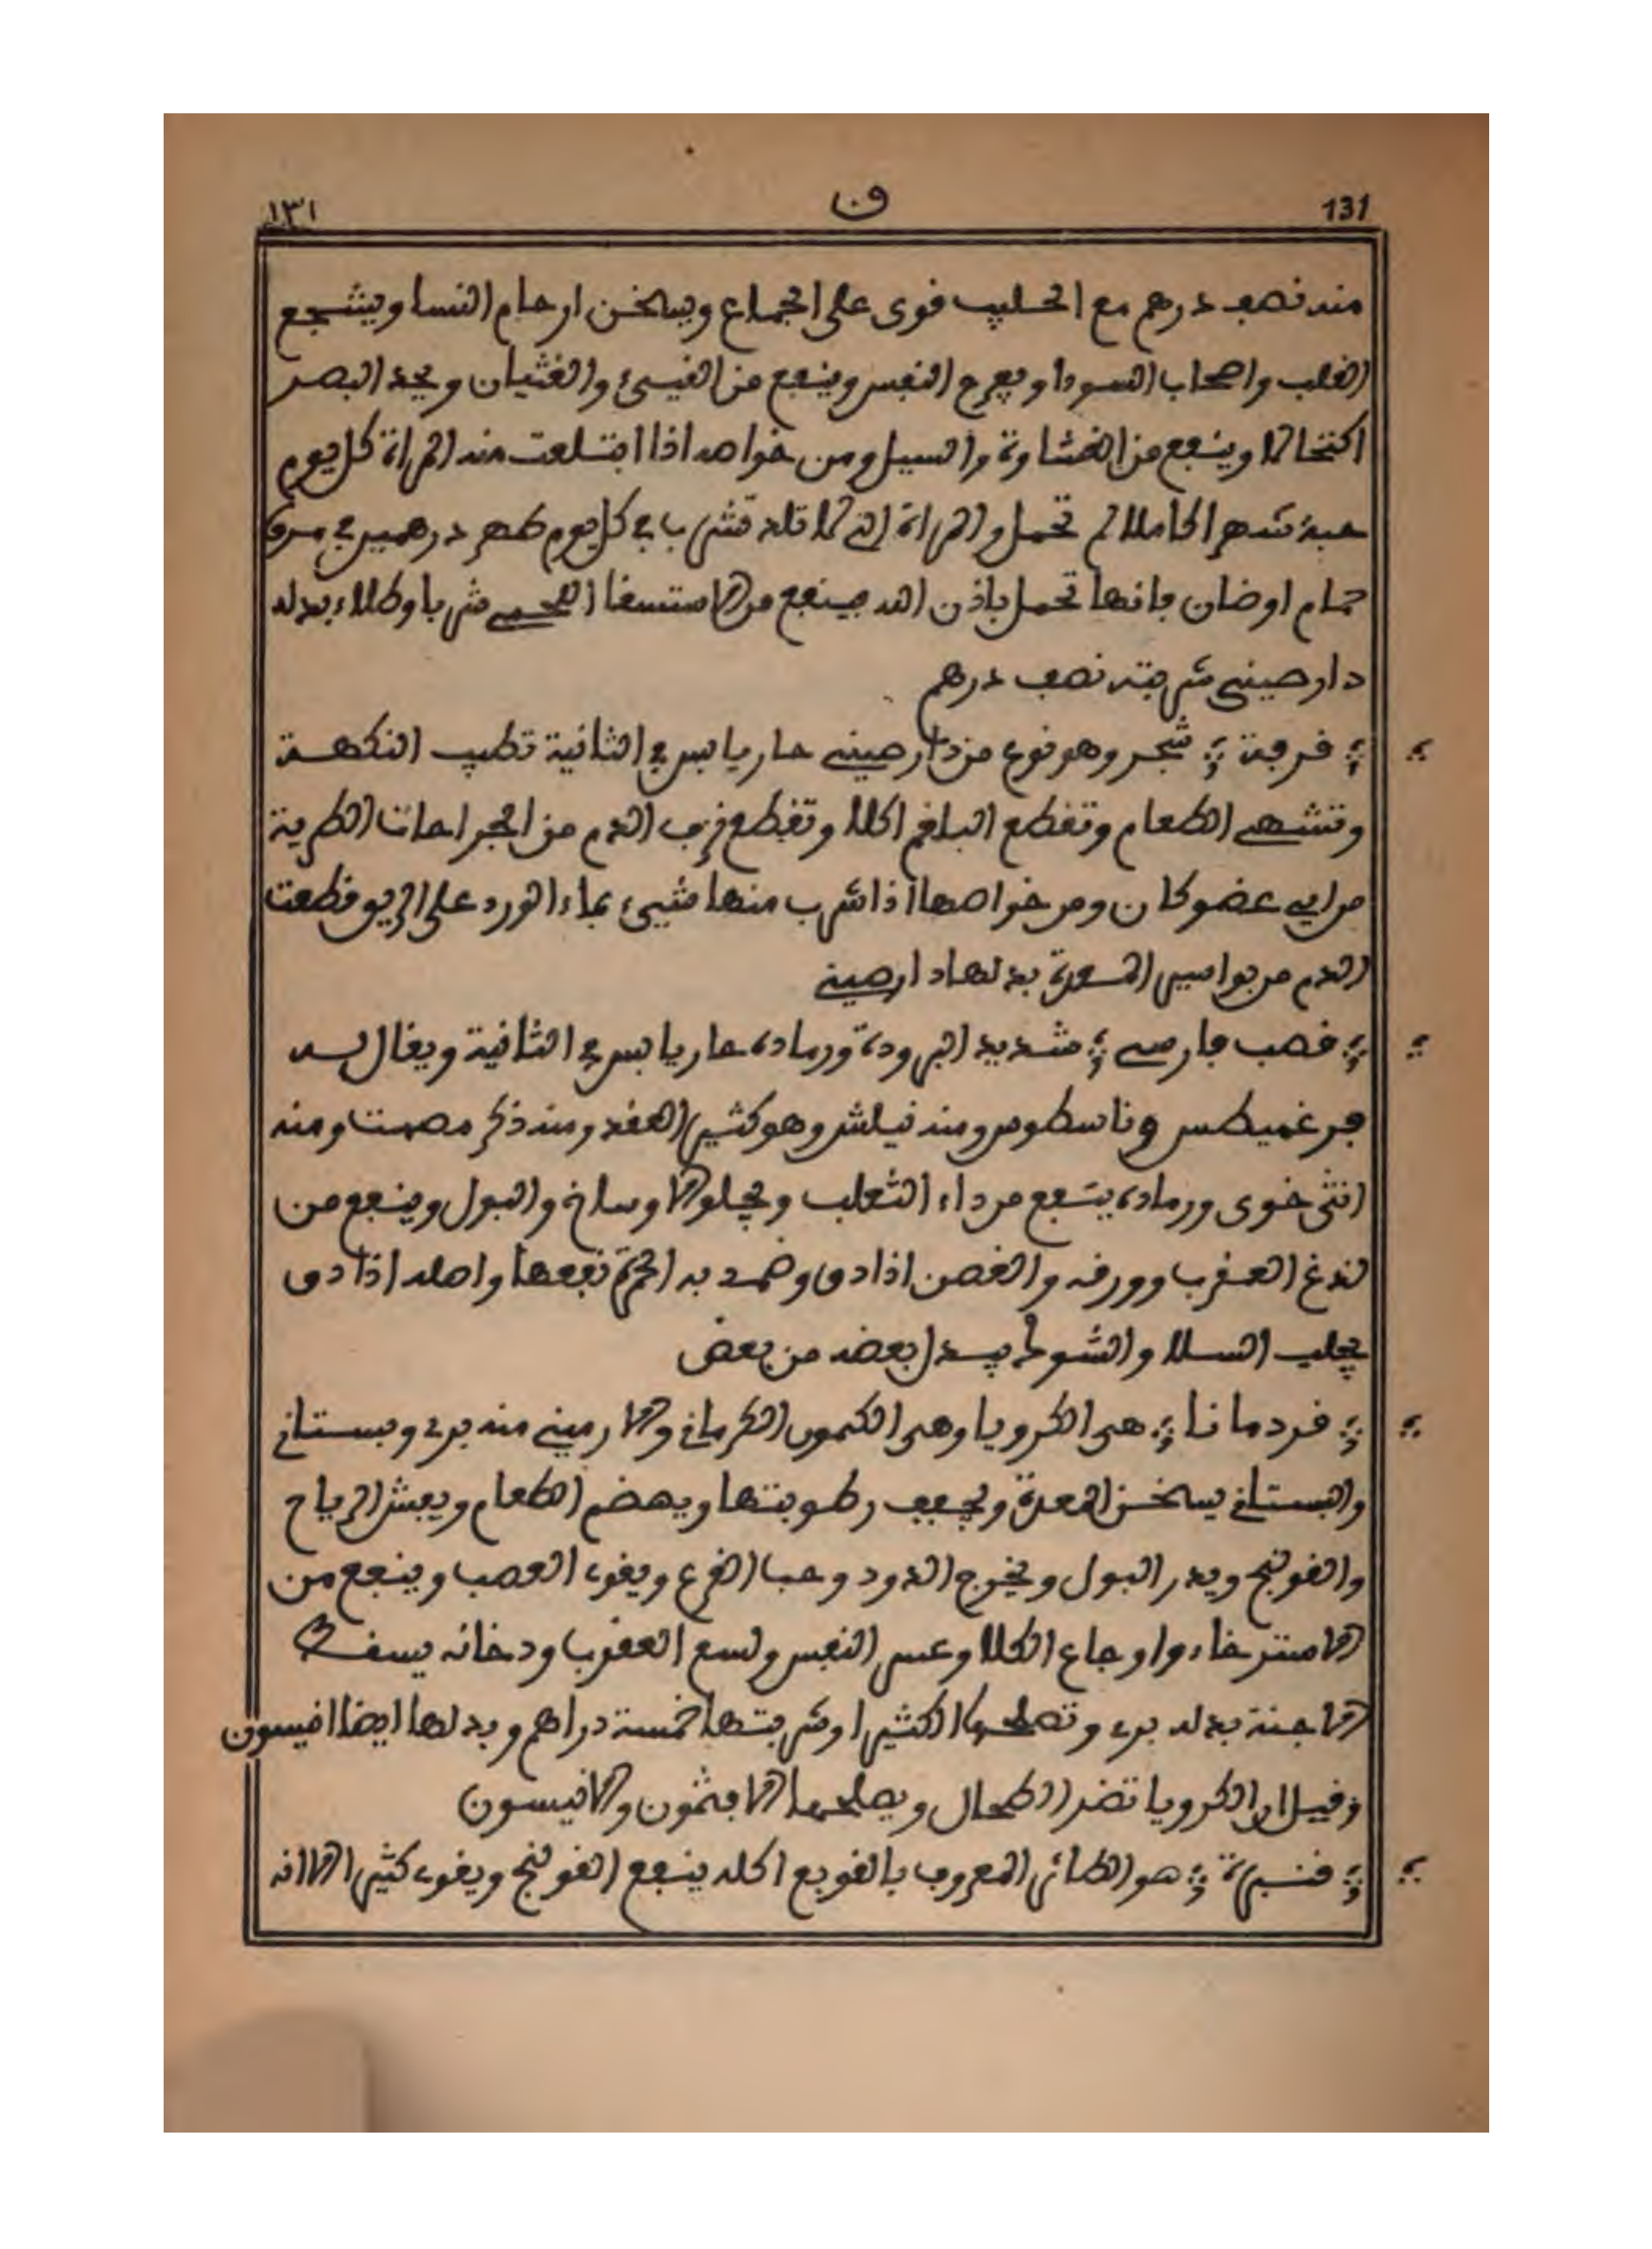 131 ق ١٣١
منه نصف درهم مع الحليب قوى على الجماع ويسخن ارحام النسا ويشجع
القلب واصحاب السودا ويفرح النفس وينفع من القيئ والغثيان ويحد البصر
اكتحالا وينفع من الغشاوة والسيل ومن خواصه اذا ابتلعت منه المراة كل يوم
حبة شهرا كاملا لم تحمل والمراة التي لا تلد تشرب في كل يوم طهر درهمين في مرق
حمام او ضان فانها تحمل باذن الله فينفع من الاستسقا اللحمي شربا وطلاء بدله
دارصيني شربته نصف درهم
قرفة شجر وهو نوع من دارصيني حار يابس في الثانية تطيب النكهة
وتشهي الطعام وتقطع البلغم اكلا وتقطع نزف الدم من الجراحات الطرية
من اي عضو كان ومن خواصها اذا شرب منها شيئ بماء الورد على الريق قطعت
الدم من بواسير المعدة بدلها دارصيني
قصب فارسي شديد البرودة ورماده حار يابس في الثانية ويقال له
فرغميطس وناسطوس ومنه نيلش وهو كثير العقد ومنه ذكر مصمت ومنه
انثى خوى ورماده ينفع من داء الثعلب ويجلو الاوساخ والبول وينفع من
لدغ العقرب وورقه والغصن اذا دق وضمد به الحمرة نفعها واصله اذا دق
يجلب السلا والشوك يبدل بعضه من بعض
قردمانا هى الكرويا وهى الكمون الكرماني والارميني منه بري وبستاني
والبستاني يسخن المعدة ويجفف رطوبتها ويهضم الطعام ويفش الرياح
والقولنج ويدر البول ويخرج الدود وحب القرع ويقوي العصب وينفع من
الاسترخاء واوجاع الكلا وعسر النفس ولسع العقرب ودخانه يسقط
الاجنة بدله بري وتصلحها الكثيرا وشربتها خمسة دراهم وبدلها ايضا انيسون
وقيل ان الكرويا تضر الطحال ويصلحها الافثمون والانيسون
قنبرة هو الطائر المعروف بالقوبع اكله ينفع القولنج ويقوي كثيرا الا انه